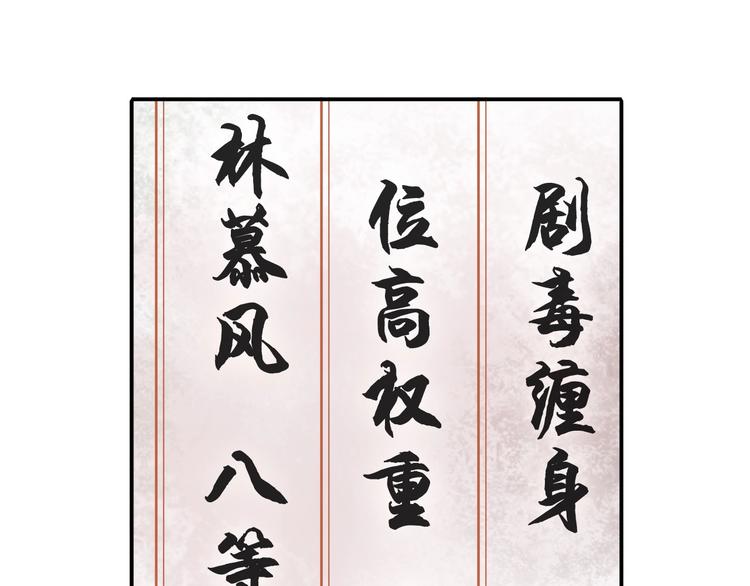 剧毒缠身
位高权重
林慕风 八等